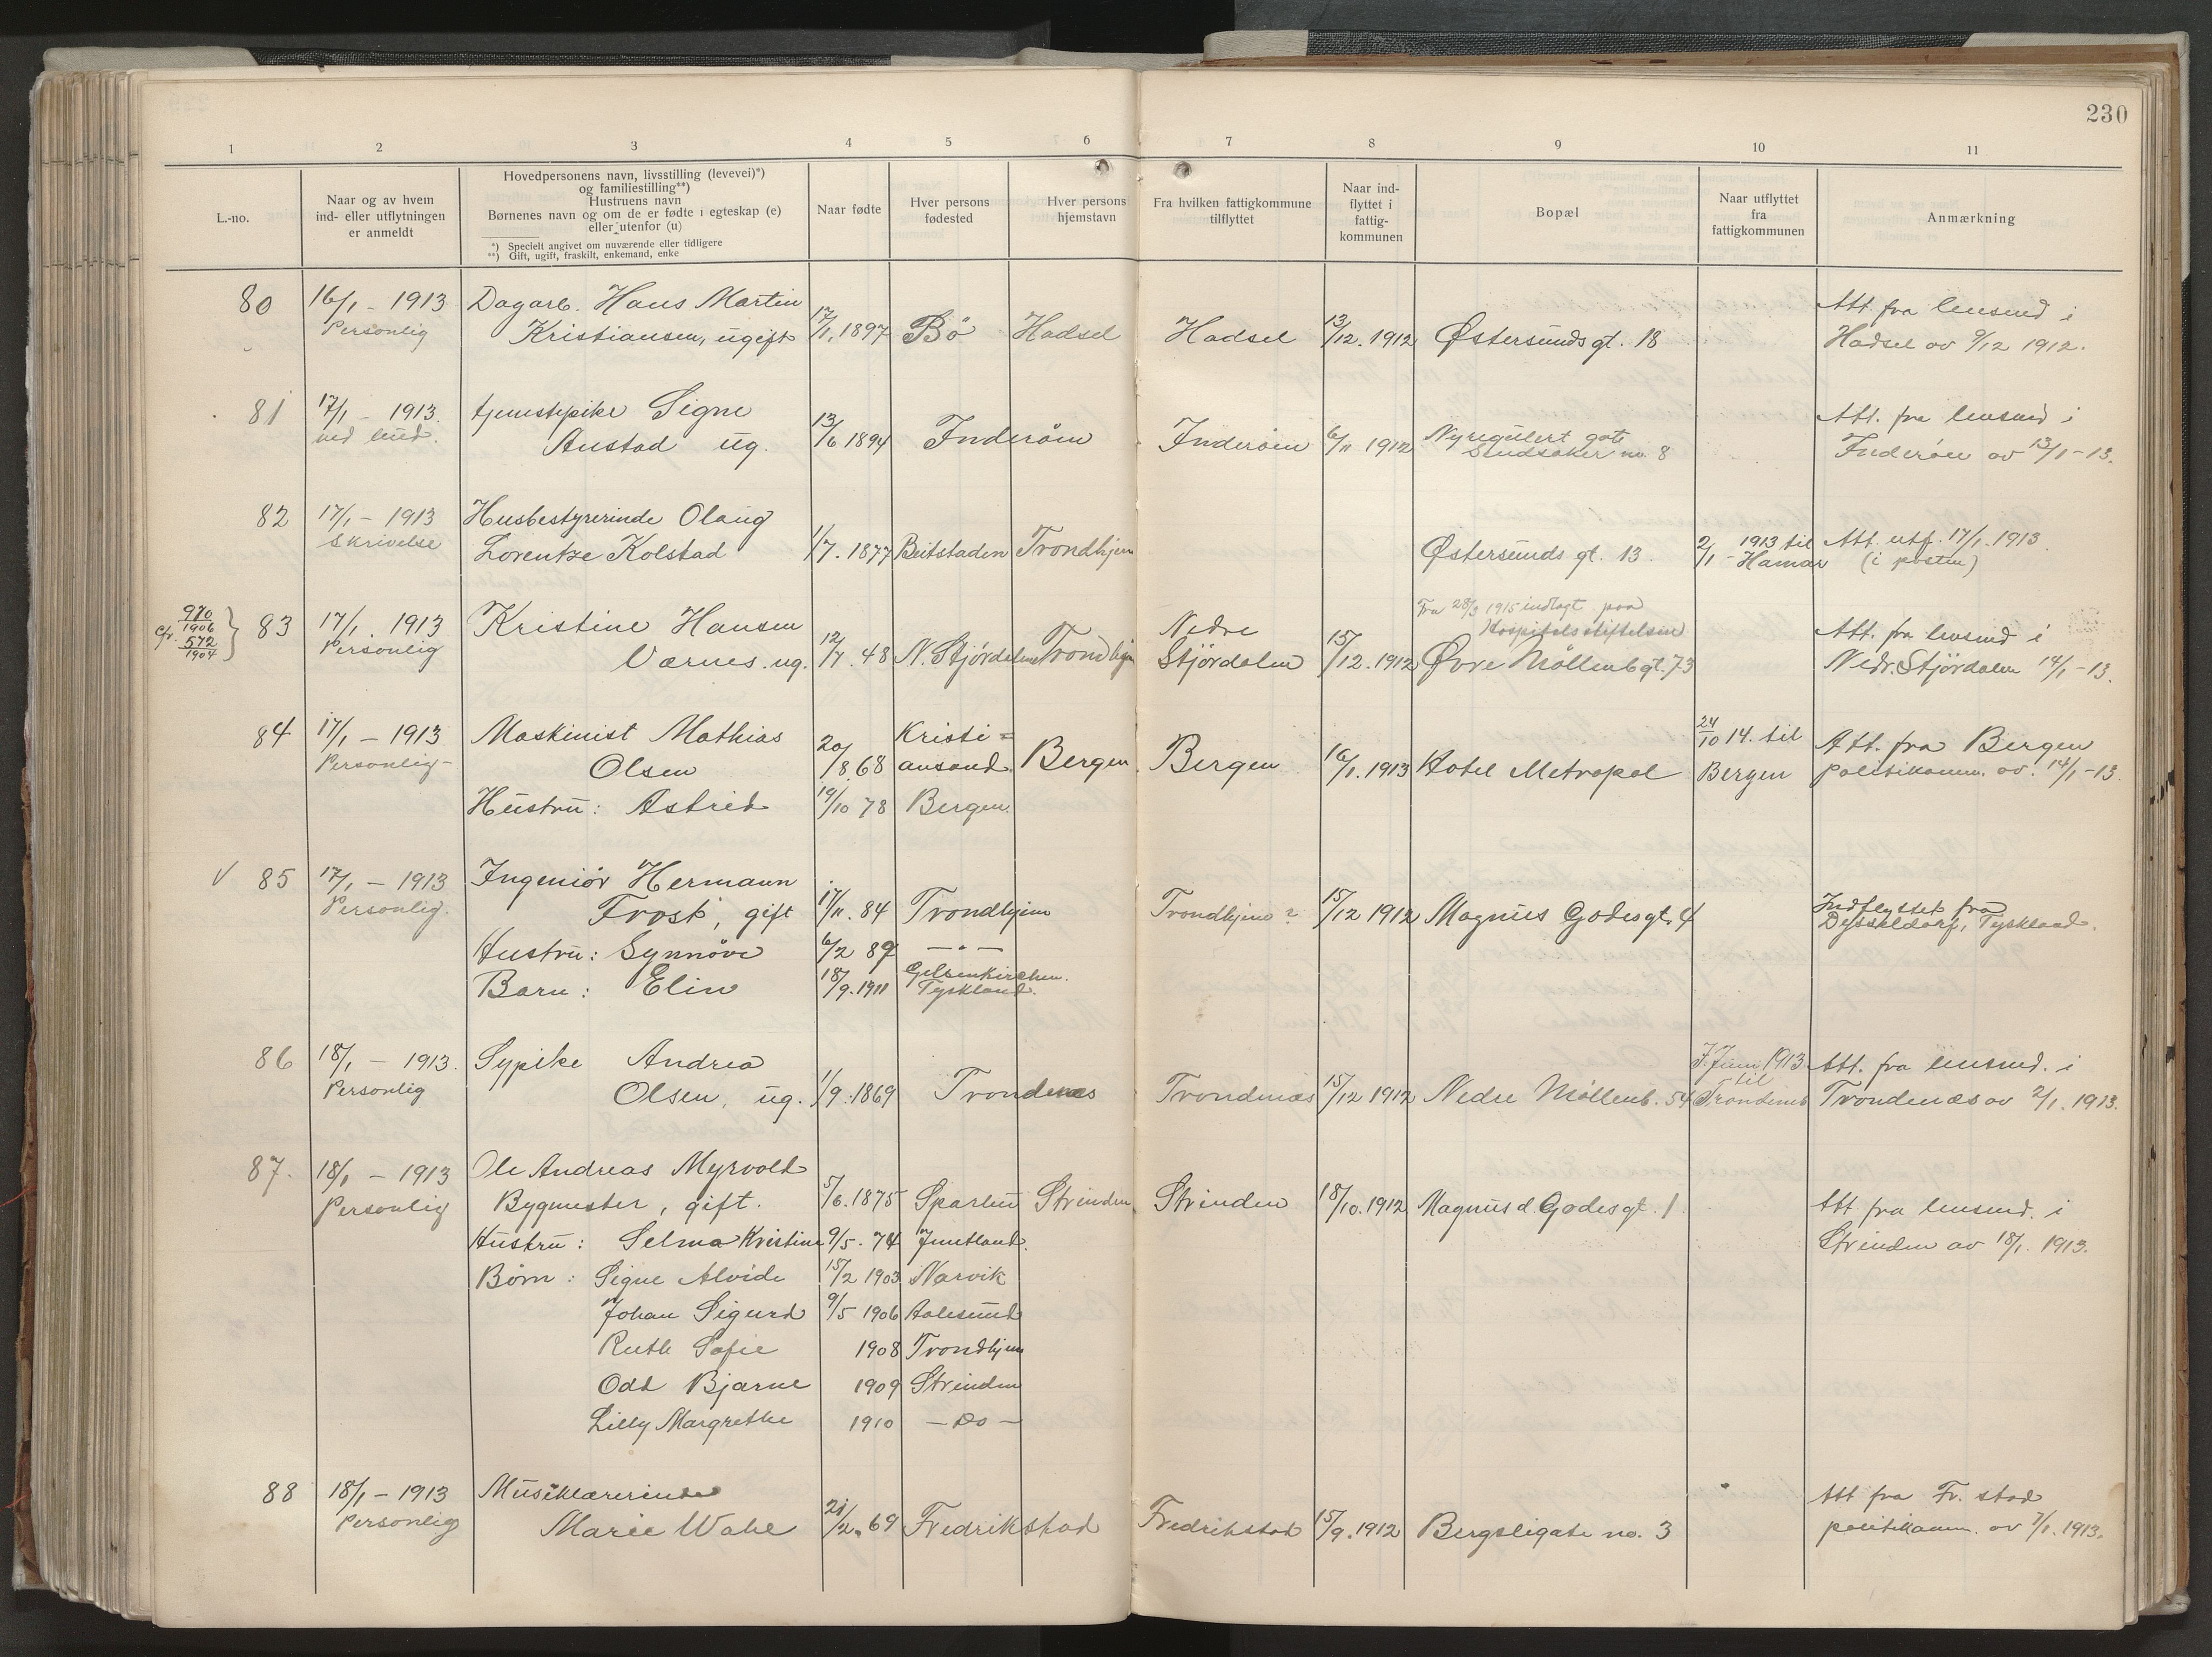 230
1 2 3 4 5 6 7 8 9 10 11
L.-no.
Naar og av hvem
ind- eller utflytningen
er anmeldt
Hovedpersonens navn, livsstilling (levevei)*)
og familiestilling**)
Hustruens navn
Børnenes navn og om de er fødte i egteskap (e)
eller utenfor (u)
*) Specielt angivet om nuværende eller tidligere
**) Gift, ugift, fraskilt, enkemand, enke
Naar fødte
Hver persons
fødested
Hver persons
hjemstavn
Fra hvilken fattigkommune
tilflyttet
Naar ind-
flyttet i
fattig-
kommunen
Bopæl
Naar utflyttet
fra
fattigkommunen
Anmærkning
80 16/1 - 1913 Dagarb. Hans Martin Att. fra lensmd i
Personlig Kristiansen, ugift 17/1. 1897 Bö Hadsel Hadsel 13/12. 1912 Østersunds gt. 18 Hadsel av 9/12 1912.
81 17/1 - 1913. tjenestepike Signe Att. fra lensmd i
ved bud. Austad ug. 13/6 1894 Inderöen Inderöen 6/11 1912 Nyregulert gate
Bludsaker no. 8 Inderöen av 13/1-13.
82 17/1 - 1913 Husbestyrerinde Olaug
Skrivelse Lorentze Kolstad 1/7. 1877 Beitstaden Trondhjem Østersunds gt. 13. 2/1 - 1913 til Hamar Att. utf. 17/1. 1913
(i posten)
cfr. 970/1906 572/1904 } 83 17/1. 1913 Kristine Hansen Nedre Fra 28/3 1915 indlagt paa
Hospitalsstiftelsen Att. fra lensmd i
Personlig Værnes. ug. 12/7. 48 N. Stjördalen Trondhjem Stjördalen 15/12. 1912 Øvre Möllenb gt. 73 Nedr. Stjördalen 14/1-13.
84 17/1 - 1913 Maskinist Mathias Kristi= 24/10 14. til Att. fra Bergen
Personlig- Olsen 20/8. 68 ansand. Bergen Bergen 16/1. 1913 Hotel Metropol Bergen politikamm. av 14/1-13.
Hustru: Astrid 19/10 78 Bergen.
✓ 85 17/1 - 1913 Ingeniör Hermann
Personlig. Frost, gift 17/11. 84 Trondhjem Trondhjem? 15/12 1912 Magnus Godesgt. 4 Indflyttet fra
Dysseldorf, Tyskland.
Hustru: Synnöve 6/2 89 — " —
Barn: Elin 18/9. 1911 Gelsenkirchen.
Tyskland.
86 18/1 - 1913. Sypike Andrea 7. Juni 1913 Att. fra lensmd. i
Personlig Olsen, ug. 1/9. 1869 Trondenes Trondenæs 15/12 1912 Nedre Möllenb. 54 til Trondenæs Trondenæs av 2/1. 1913.
87. 18/1 - 1913 Ole Andreas Myrvold
Personlig Bygmester, gift. 5/6. 1875 Sparbu Strinden Strinden 18/10. 1912 Magnus d Godes gt. 1 Att. fra lensmd. i
Hustru: Selma Kristine 9/5. 74 Jemtland. Strinden av 18/1. 1913.
Börn: Signe Alvide 15/2 1903 Narvik
Johan Sigurd 9/5 1906 Aalesund
Ruth Sofie 1908 Trondhjem
Odd Bjarne 1909 Strinden
Lilly Margrethe 1910 — Do —
88 18/1 - 1913 Musiklærerinde Att fra Fr. stad
Personlig Marie Wahl 21/2. 69 Fredrikstad Fredrikstad 15/9. 1912 Bergsligate no. 3 politikamm. av 7/1. 1913.